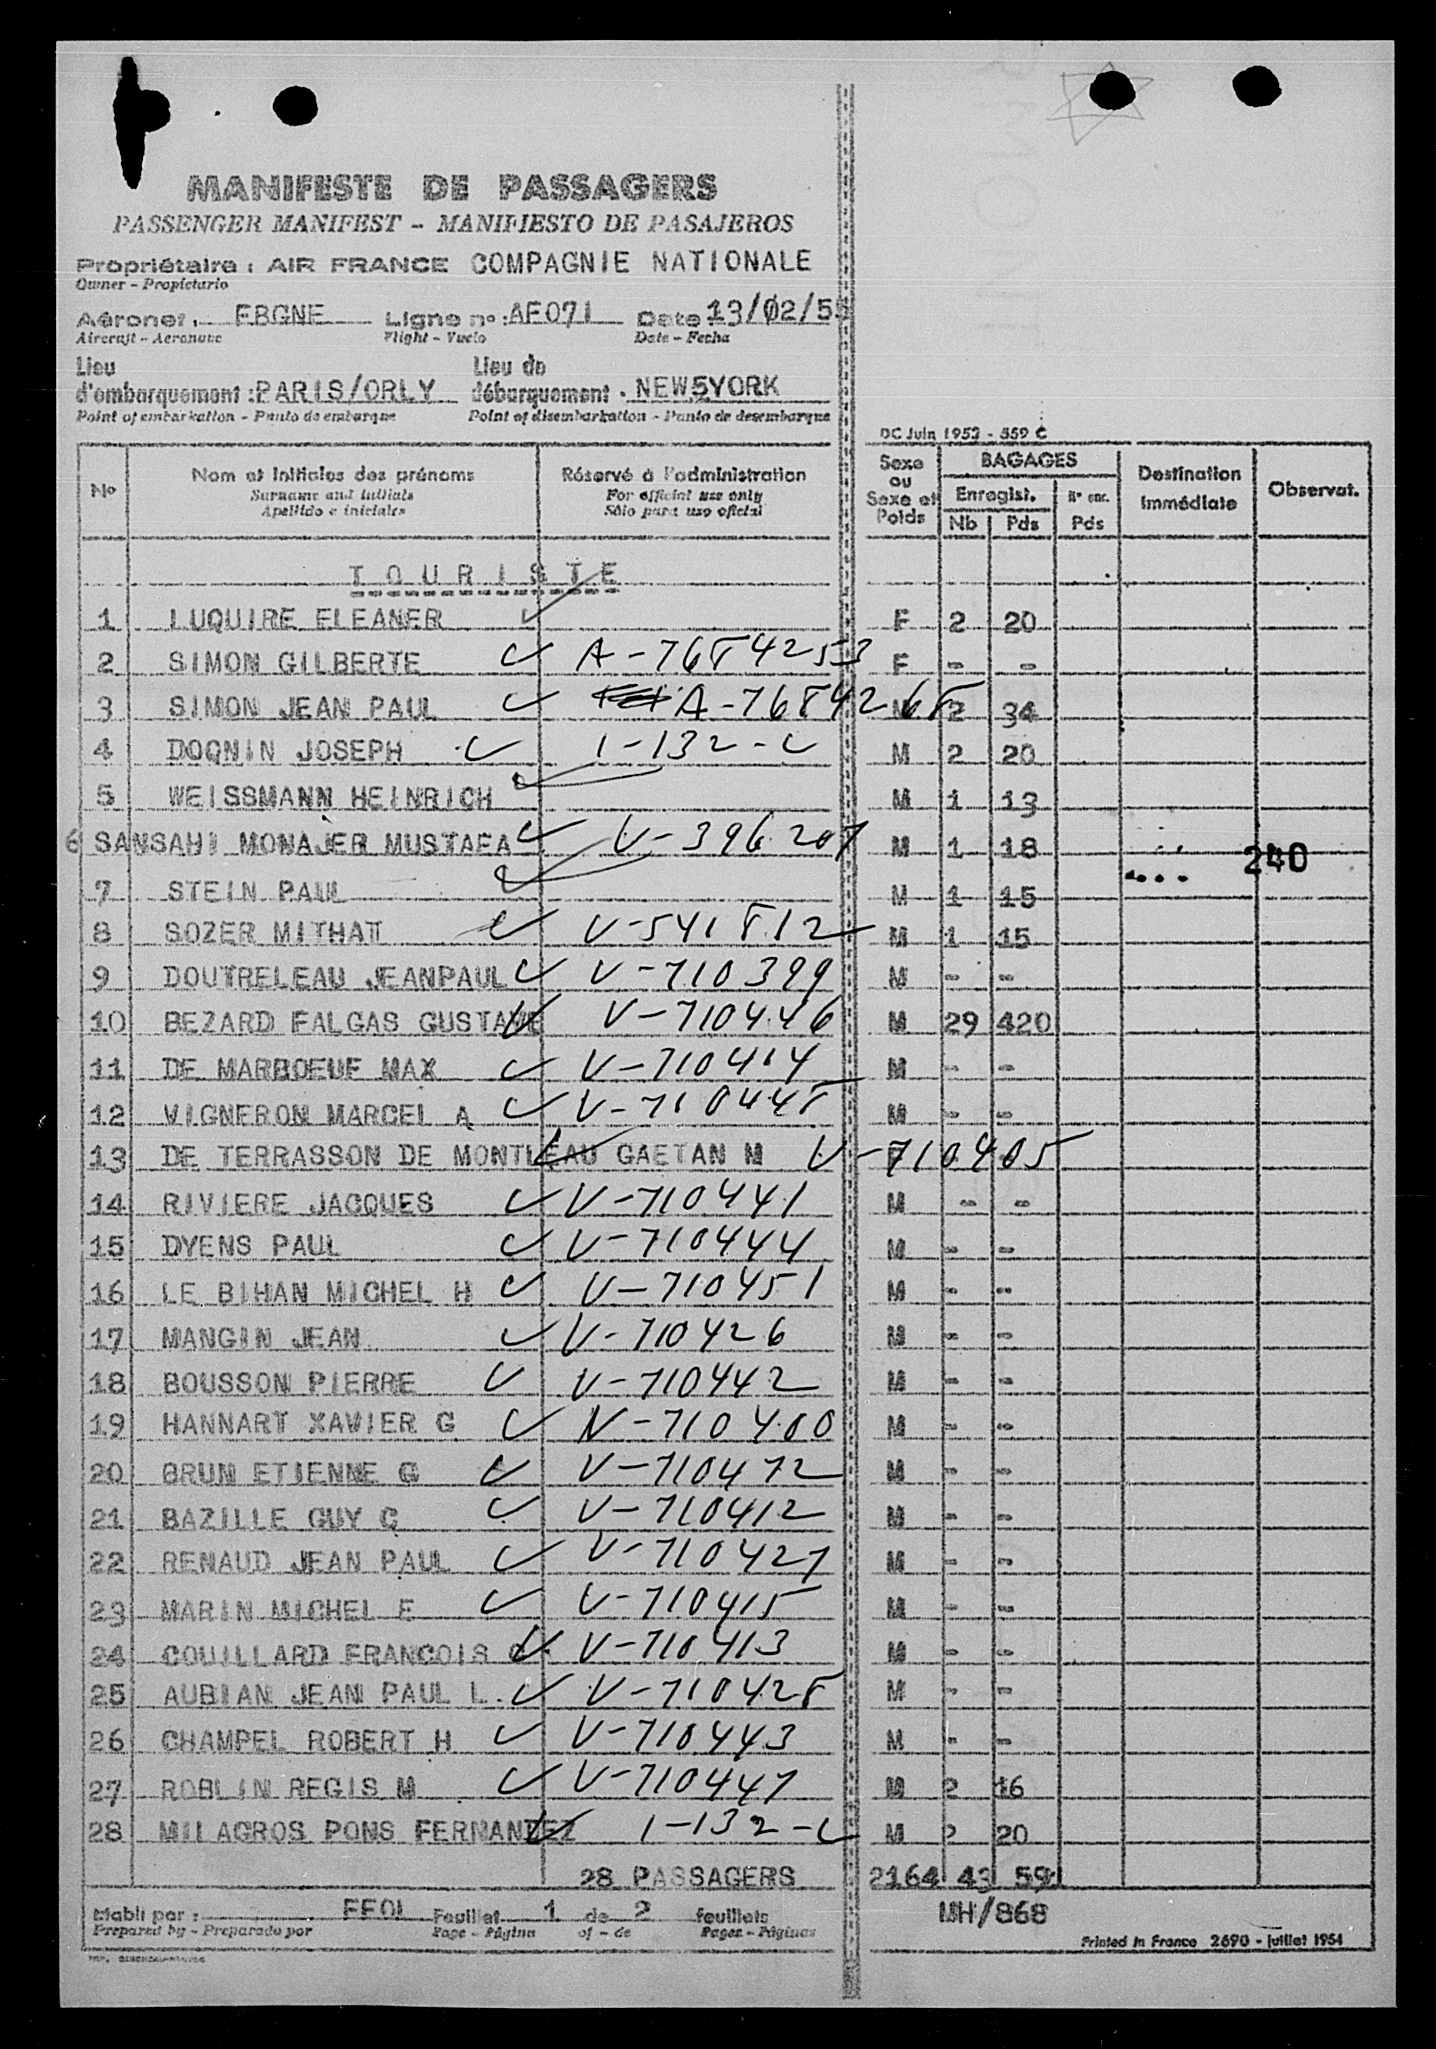 MANIFESTE DE PASSAGERS
PASSENGER MANIFEST - MANIFIESTO DE PASAJEROS
Propriétaire : AIR FRANCE COMPAGNIE NATIONALE
Owner - Propietario
Aéronef : FBGNE Ligne n° : AF071 Date 13/02/55
Aircraft - Aeronave Flight - Vuelo Date - Fecha
Lieu Lieu de
d'embarquement : PARIS/ORLY débarquement . NEW5YORK
Point of embarkation - Punto de embarque Point of disembarkation - Punto de desembarque
DC Juin 1953 - 559 C
N° Nom et initiales des prénoms Réservé à l'administration Sexe ou Sexe et Poids BAGAGES Destination immédiate Observat.
Surname and initials For official use only Enregist. N° enr.
Apellido e iniciales Sólo para uso oficial Nb Pds Pds
TOURISTE
1 LUQUIRE ELEANER F 2 20
2 SIMON GILBERTE A-7684253 F - -
3 SIMON JEAN PAUL A-7684268 M 2 34
4 DOGNIN JOSEPH 1-132-C M 2 20
5 WEISSMANN HEINRICH M 1 13
6 SANSAHI MONAJER MUSTAFA V-396207 M 1 18
240
7 STEIN PAUL M 1 15
8 SOZER MITHAT V-541812 M 1 15
9 DOUTRELEAU JEANPAUL V-710399 M - -
10 BEZARD FALGAS GUSTAVE V-710446 M 29 420
11 DE MARBOEUF MAX V-710414 M - -
12 VIGNERON MARCEL A V-710448 M - -
13 DE TERRASSON DE MONTLEAU GAETAN M V-710405
14 RIVIERE JACQUES V-710441 M - -
15 DYENS PAUL V-710444 M - -
16 LE BIHAN MICHEL H V-710451 M - -
17 MANGIN JEAN V-710426 M - -
18 BOUSSON PIERRE V-710442 M - -
19 HANNART XAVIER G V-710400 M - -
20 BRUN ETIENNE G V-710472 M - -
21 BAZILLE GUY C V-710412 M - -
22 RENAUD JEAN PAUL V-710427 M - -
23 MARIN MICHEL E V-710415 M - -
24 COUILLARD FRANCOIS C V-710413 M - -
25 AUBIAN JEAN PAUL L V-710428 M - -
26 CHAMPEL ROBERT H V-710443 M - -
27 ROBLIN REGIS M V-710447 M 2 16
28 MILAGROS PONS FERNANDEZ 1-132-C M 2 20
28 PASSAGERS 2164 43 591
Etabli par : FFOL Feuillet 1 de 2 feuillets MH/868
Prepared by - Preparado por Page - Página of - de Pages - Páginas
Printed in France 2690 - juillet 1954